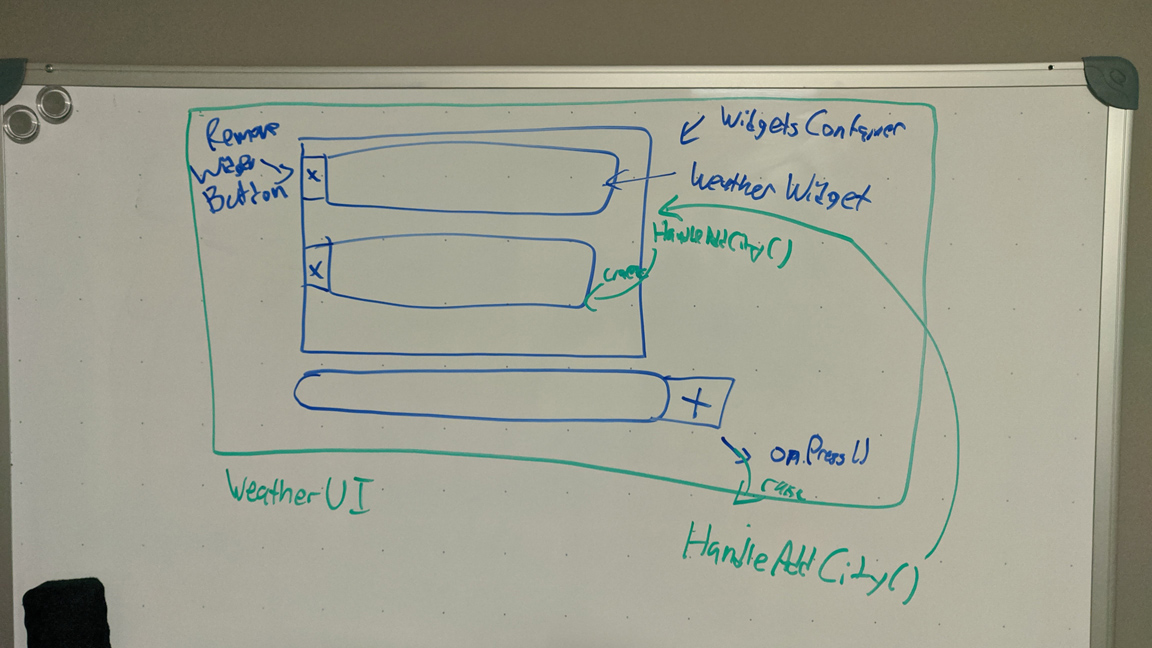 Remove
Button
x
x
Widgets Container
Weather Widget
HandleAddCity()
+
on.Press()
raise
Weather UI
HandleAddCity()